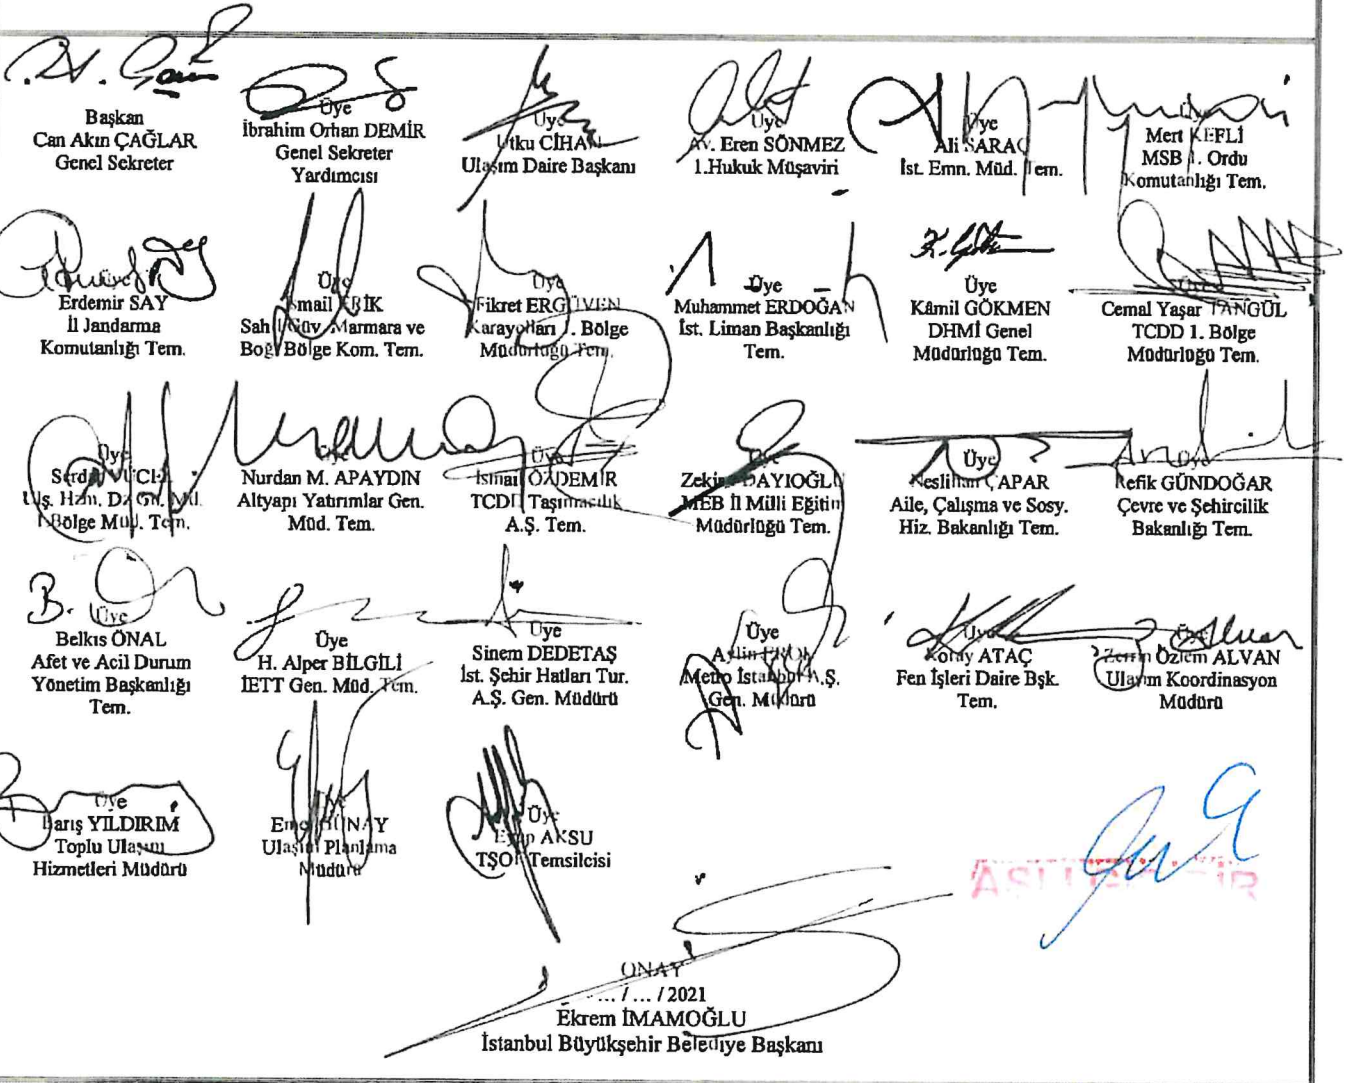 Başkan
Can Akın ÇAĞLAR
Genel Sekreter
Üye
İbrahim Orhan DEMİR
Genel Sekreter
Yardımcısı
Üye
Utku CİHAN
Ulaşım Daire Başkanı
Üye
Av. Eren SÖNMEZ
1.Hukuk Müşaviri
Üye
Ali SARAÇ
İst. Emn. Müd. Tem.
Üye
Mert KEFLİ
MSB 1. Ordu
Komutanlığı Tem.
Üye
Erdemir SAY
İl Jandarma
Komutanlığı Tem.
Üye
İsmail ERİK
Sahil Güv. Marmara ve
Boğ. Bölge Kom. Tem.
Üye
Fikret ERGÜVEN
Karayolları 1. Bölge
Müdürlüğü Tem.
Üye
Muhammet ERDOĞAN
İst. Liman Başkanlığı
Tem.
K. Gökmen
Üye
Kâmil GÖKMEN
DHMİ Genel
Müdürlüğü Tem.
Üye
Cemal Yaşar TANGÜL
TCDD 1. Bölge
Müdürlüğü Tem.
Üye
Bölge Müd. Tem.
Üye
Nurdan M. APAYDIN
Altyapı Yatırımlar Gen.
Müd. Tem.
Üye
İsmail ÖZDEMİR
TCDD Taşımacılık
A.Ş. Tem.
Üye
DAYIOĞLU
MEB İl Milli Eğitim
Müdürlüğü Tem.
Üye
Neslihan ÇAPAR
Aile, Çalışma ve Sosy.
Hiz. Bakanlığı Tem.
Üye
Refik GÜNDOĞAR
Çevre ve Şehircilik
Bakanlığı Tem.
Üye
Belkıs ÖNAL
Afet ve Acil Durum
Yönetim Başkanlığı
Tem.
Üye
H. Alper BİLGİLİ
İETT Gen. Müd. Tem.
Üye
Sinem DEDETAŞ
İst. Şehir Hatları Tur.
A.Ş. Gen. Müdürü
Üye
Metro İstanbul A.Ş.
Gen. Müdürü
Üye
Koray ATAÇ
Fen İşleri Daire Bşk.
Tem.
Üye
Özlem ALVAN
Ulaşım Koordinasyon
Müdürü
Üye
Barış YILDIRIM
Toplu Ulaşım
Hizmetleri Müdürü
Üye
Ulaşım Planlama
Müdürü
Üye
AKSU
TŞOF Temsilcisi
ASLI GİBİDİR
ONAY
... / ... / 2021
Ekrem İMAMOĞLU
İstanbul Büyükşehir Belediye Başkanı